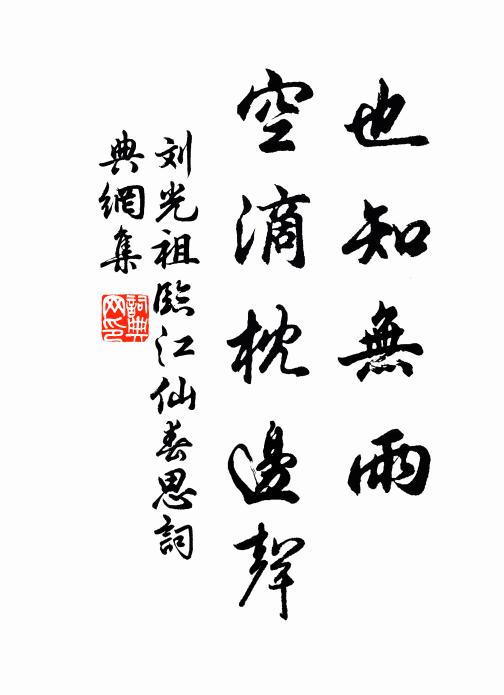 也知無雨
空滴枕邊聲
刘光祖臨江仙春思詞
典網集
詞典網印